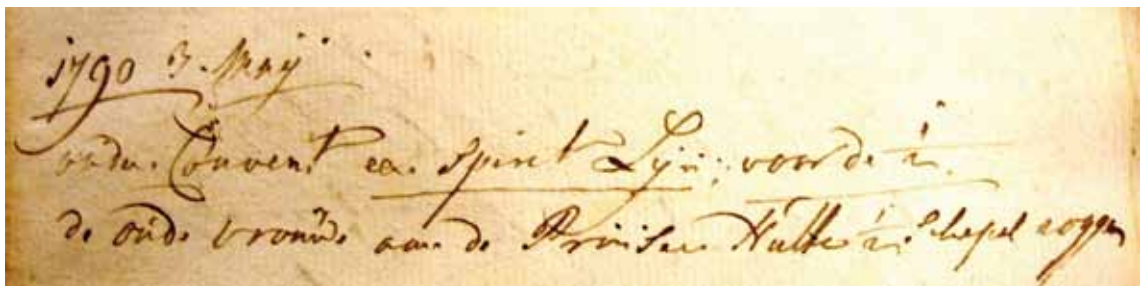 1790 3. Maij
Convent een spint Lijn: voor de
de oude vrouwe aan de Pruisse Hutte ½ schepel roggen